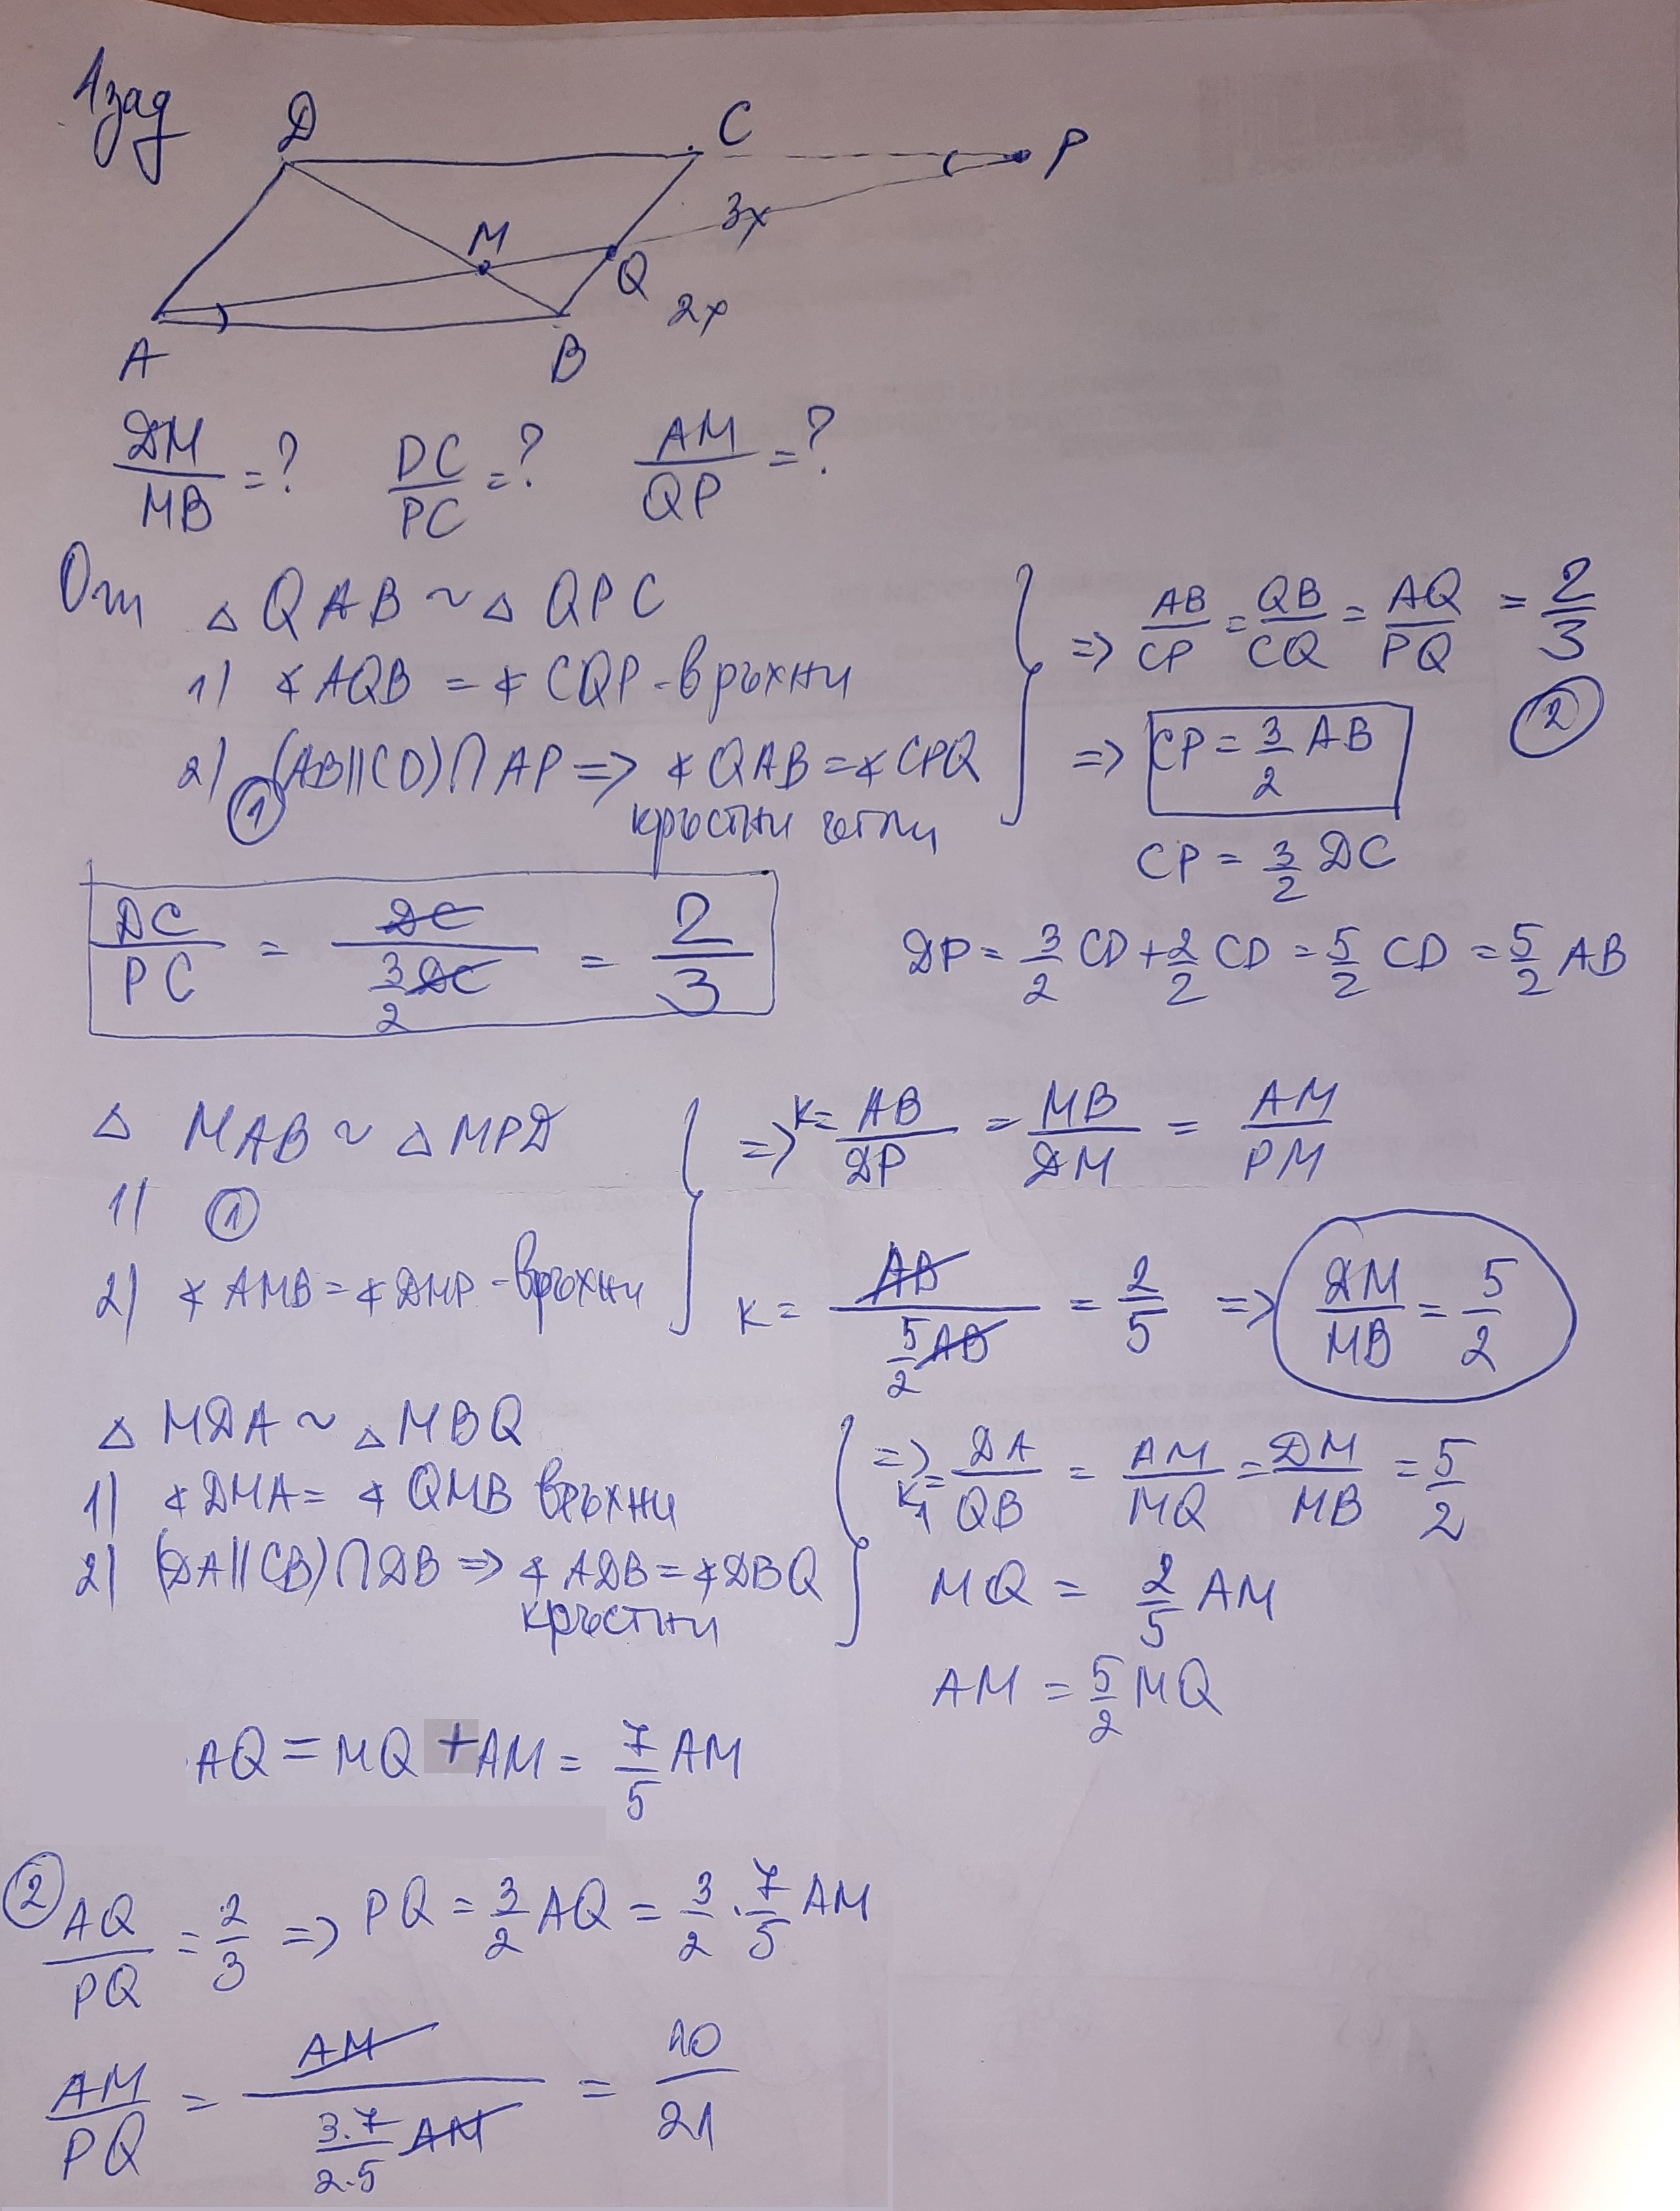 1зад
D C P
M 3x
Q
2x
A B
DM/MB = ? DC/PC = ? AM/QP = ?
От △ QAB ~ △ QPC
1) ∢ AQB = ∢ CQP - връхни
2) (AB||CD) ∩ AP => ∢ QAB = ∢ CPQ
① кръстни ъгли
=> AB/CP = QB/CQ = AQ/PQ = 2/3
②
=> CP = 3/2 AB
CP = 3/2 DC
DC/PC = DC/(3/2 DC) = 2/3
DP = 3/2 CD + 2/2 CD = 5/2 CD = 5/2 AB
△ MAB ~ △ MPD
1) ①
2) ∢ AMB = ∢ DMP - връхни
=> K = AB/DP = MB/DM = AM/PM
K = AB/(5/2 AB) = 2/5 => DM/MB = 5/2
△ MDA ~ △ MBQ
1) ∢ DMA = ∢ QMB връхни
2) (DA||CB) ∩ DB => ∢ ADB = ∢ DBQ
кръстни
=> K₁ = DA/QB = AM/MQ = DM/MB = 5/2
MQ = 2/5 AM
AM = 5/2 MQ
AQ = MQ + AM = 7/5 AM
② AQ/PQ = 2/3 => PQ = 3/2 AQ = 3/2 . 7/5 AM
AM/PQ = AM/(3.7/2.5 AM) = 10/21